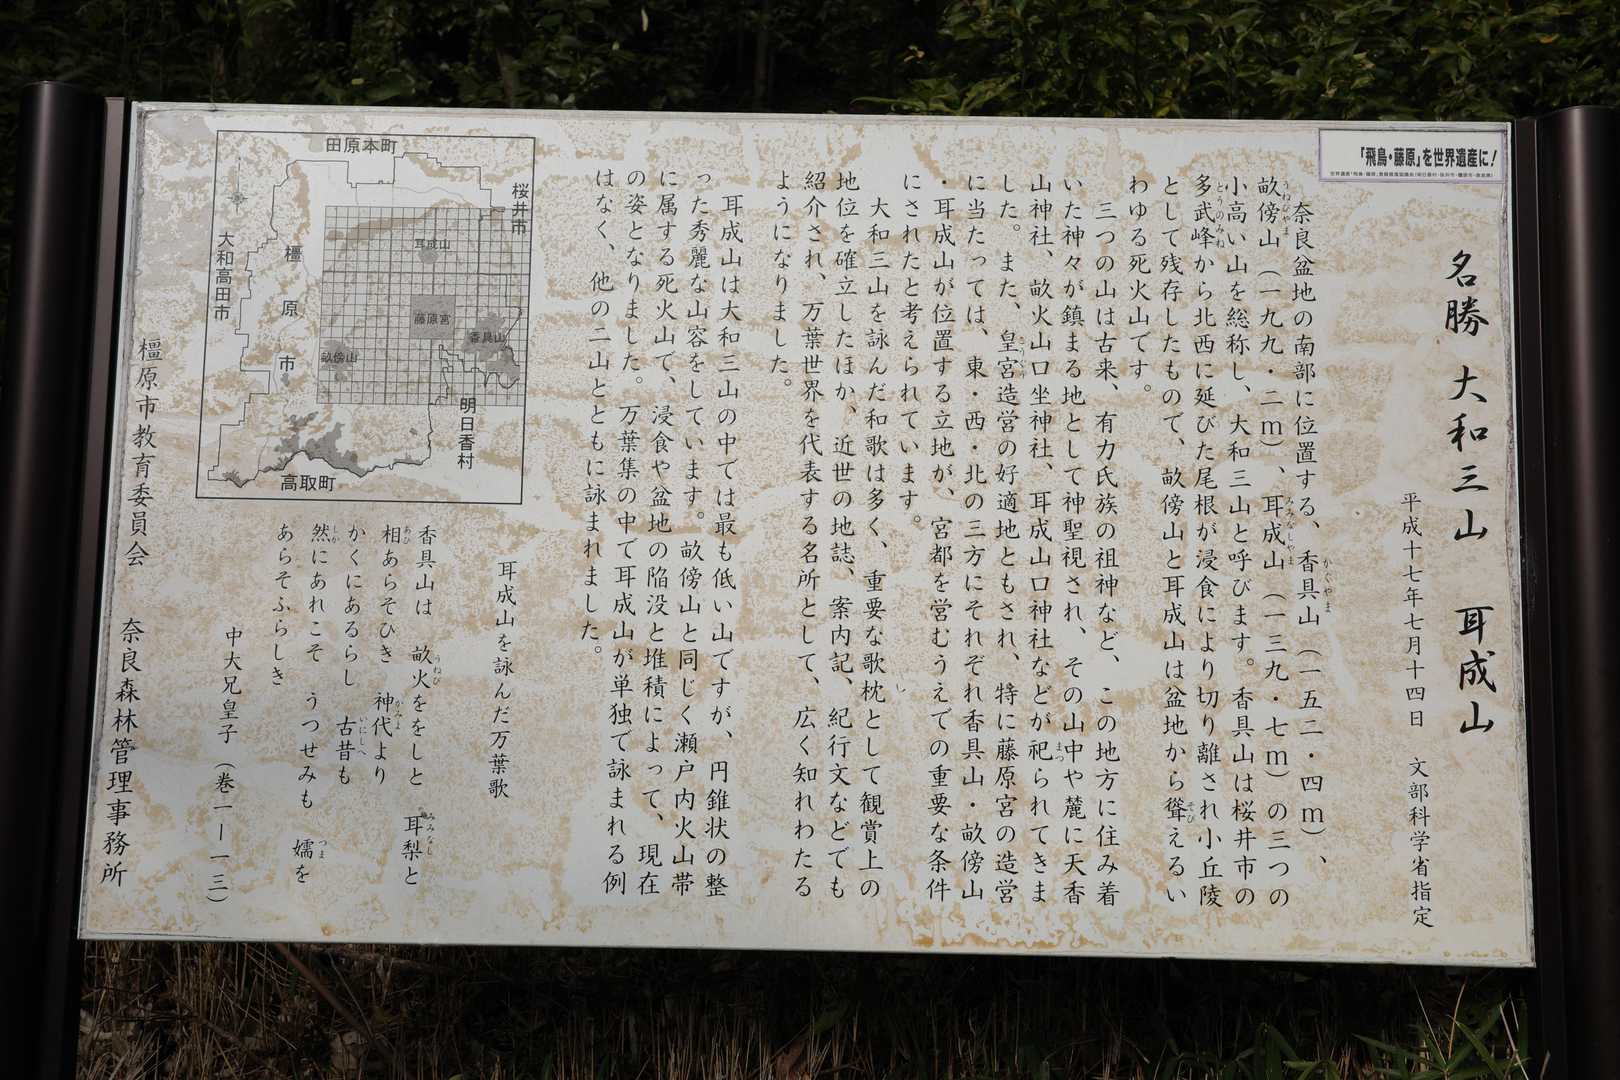 「飛鳥・藤原」を世界遺産に！
名勝 大和三山 耳成山
平成十七年七月十四日 文部科学省指定
奈良盆地の南部に位置する、香具山（一五二・四m）、
畝傍山（一九九・二m）、耳成山（一三九・七m）の三つの
小高い山を総称し、大和三山と呼びます。香具山は桜井市の
多武峰から北西に延びた尾根が浸食により切り離され小丘陵
として残存したもので、畝傍山と耳成山は盆地から聳えるい
わゆる死火山です。
三つの山は古来、有力氏族の祖神など、この地方に住み着
いた神々が鎮まる地として神聖視され、その山中や麓に天香
山神社、畝火山口坐神社、耳成山口神社などが祀られてきま
した。また、皇宮造営の好適地ともされ、特に藤原宮の造営
に当たっては、東・西・北の三方にそれぞれ香具山・畝傍山
・耳成山が位置する立地が、宮都を営むうえでの重要な条件
にされたと考えられています。
大和三山を詠んだ和歌は多く、重要な歌枕として観賞上の
地位を確立したほか、近世の地誌、案内記、紀行文などでも
紹介され、万葉世界を代表する名所として、広く知れわたる
ようになりました。
耳成山は大和三山の中では最も低い山ですが、円錐状の整
った秀麗な山容をしています。畝傍山と同じく瀬戸内火山帯
に属する死火山で、浸食や盆地の陥没と堆積によって、現在
の姿となりました。万葉集の中で耳成山が単独で詠まれる例
はなく、他の二山とともに詠まれました。
耳成山を詠んだ万葉歌
香具山は 畝火ををしと 耳梨と
相あらそひき 神代より
かくにあるらし 古昔も
然にあれこそ うつせみも 嬬を
あらそふらしき
中大兄皇子（巻一－一三）
田原本町
桜井市
大和高田市
橿原市
耳成山
藤原宮
香具山
畝傍山
明日香村
高取町
橿原市教育委員会 奈良森林管理事務所